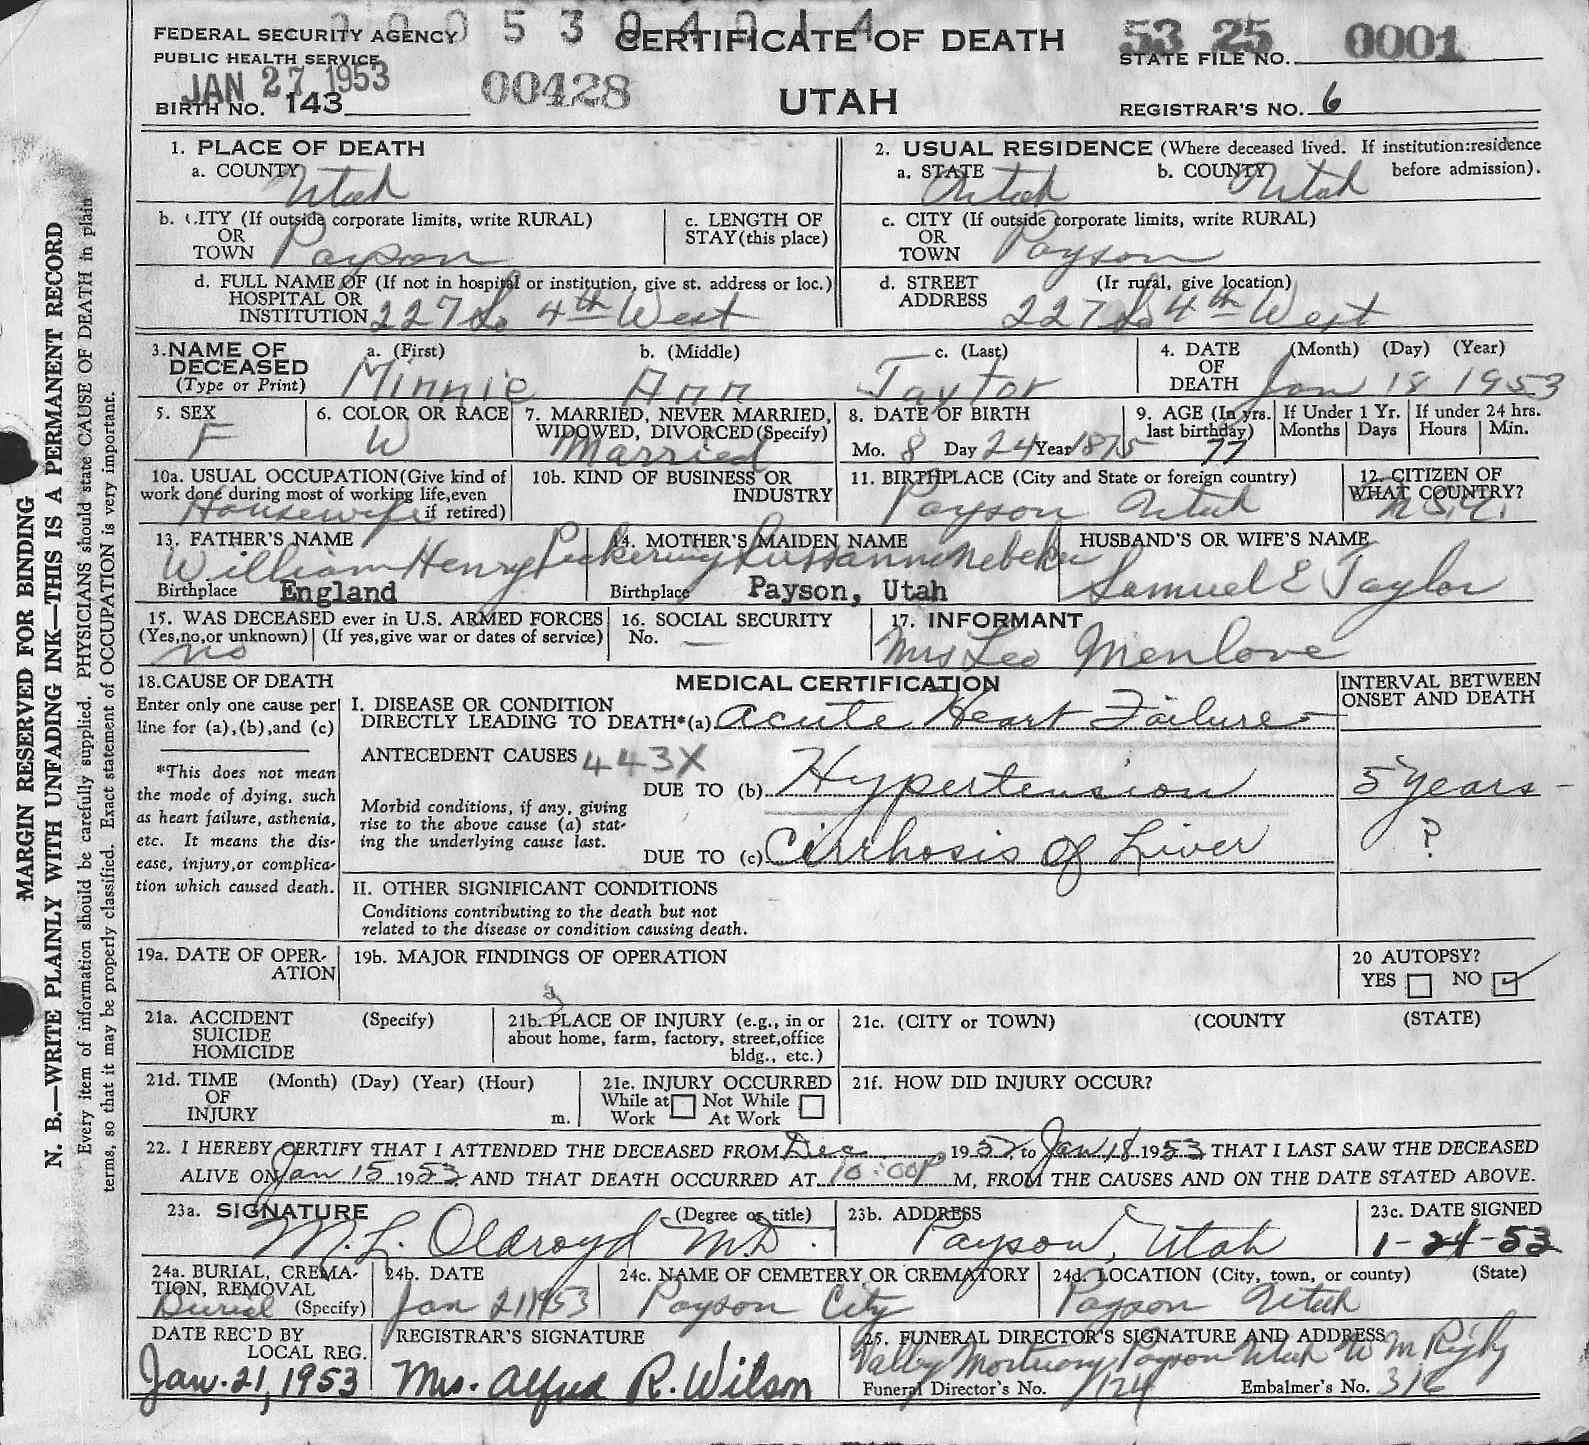 0 0 0 5 3 0 4 0 1 4
FEDERAL SECURITY AGENCY
PUBLIC HEALTH SERVICE
JAN 27 1953
BIRTH NO. 143
00428
CERTIFICATE OF DEATH
UTAH
53 25 0001
STATE FILE NO.
REGISTRAR'S NO. 6
MARGIN RESERVED FOR BINDING
N. B.—WRITE PLAINLY WITH UNFADING INK—THIS IS A PERMANENT RECORD
Every item of information should be carefully supplied. PHYSICIANS should state CAUSE OF DEATH in plain
terms, so that it may be properly classified. Exact statement of OCCUPATION is very important.
1. PLACE OF DEATH
a. COUNTY Utah
b. CITY (If outside corporate limits, write RURAL)
OR
TOWN Payson
c. LENGTH OF
STAY (this place)
d. FULL NAME OF (If not in hospital or institution, give st. address or loc.)
HOSPITAL OR
INSTITUTION 227 So 4th West
2. USUAL RESIDENCE (Where deceased lived. If institution:residence
before admission).
a. STATE Utah b. COUNTY Utah
c. CITY (If outside corporate limits, write RURAL)
OR
TOWN Payson
d. STREET (Ir rural, give location)
ADDRESS 227 So 4th West
3. NAME OF
DECEASED
(Type or Print)
a. (First) Minnie
b. (Middle) Ann
c. (Last) Taylor
4. DATE
OF
DEATH
(Month) (Day) (Year)
Jan 18 1953
5. SEX
F
6. COLOR OR RACE
W
7. MARRIED, NEVER MARRIED,
WIDOWED, DIVORCED (Specify)
Married
8. DATE OF BIRTH
Mo. 8 Day 24 Year 1875
9. AGE (In yrs.
last birthday)
77
If Under 1 Yr.
Months Days
If under 24 hrs.
Hours Min.
10a. USUAL OCCUPATION (Give kind of
work done during most of working life, even
if retired)
Housewife
10b. KIND OF BUSINESS OR
INDUSTRY
11. BIRTHPLACE (City and State or foreign country)
Payson Utah
12. CITIZEN OF
WHAT COUNTRY?
U.S.A.
13. FATHER'S NAME
William Henry Pickering
Birthplace England
14. MOTHER'S MAIDEN NAME
Nebeker
Birthplace Payson, Utah
HUSBAND'S OR WIFE'S NAME
Samuel E Taylor
15. WAS DECEASED ever in U.S. ARMED FORCES
(Yes, no, or unknown) (If yes, give war or dates of service)
No
16. SOCIAL SECURITY
No. —
17. INFORMANT
Mrs Leo Menlove
18. CAUSE OF DEATH
Enter only one cause per
line for (a), (b), and (c)
*This does not mean
the mode of dying, such
as heart failure, asthenia,
etc. It means the dis-
ease, injury, or complica-
tion which caused death.
MEDICAL CERTIFICATION
I. DISEASE OR CONDITION
DIRECTLY LEADING TO DEATH*(a) Acute Heart Failure
ANTECEDENT CAUSES 443X
DUE TO (b) Hypertension
Morbid conditions, if any, giving
rise to the above cause (a) stat-
ing the underlying cause last.
DUE TO (c) Cirrhosis of Liver
II. OTHER SIGNIFICANT CONDITIONS
Conditions contributing to the death but not
related to the disease or condition causing death.
INTERVAL BETWEEN
ONSET AND DEATH
5 years -
?
19a. DATE OF OPER-
ATION
19b. MAJOR FINDINGS OF OPERATION
20 AUTOPSY?
YES NO ✓
21a. ACCIDENT (Specify)
SUICIDE
HOMICIDE
21b. PLACE OF INJURY (e.g., in or
about home, farm, factory, street, office
bldg., etc.)
21c. (CITY or TOWN) (COUNTY (STATE)
21d. TIME (Month) (Day) (Year) (Hour)
OF
INJURY m.
21e. INJURY OCCURRED
While at Not While
Work At Work
21f. HOW DID INJURY OCCUR?
22. I HEREBY CERTIFY THAT I ATTENDED THE DECEASED FROM Dec 1952, to Jan 18 1953 THAT I LAST SAW THE DECEASED
ALIVE ON Jan 15 1953 AND THAT DEATH OCCURRED AT 10:00P M, FROM THE CAUSES AND ON THE DATE STATED ABOVE.
23a. SIGNATURE (Degree or title)
M. L. Oldroyd M.D.
23b. ADDRESS
Payson, Utah
23c. DATE SIGNED
1-21-53
24a. BURIAL, CREMA-
TION, REMOVAL
Burial (Specify)
24b. DATE
Jan 21 1953
24c. NAME OF CEMETERY OR CREMATORY
Payson City
24d. LOCATION (City, town, or county) (State)
Payson Utah
DATE REC'D BY
LOCAL REG.
Jan. 21, 1953
REGISTRAR'S SIGNATURE
Mrs. Alfred R. Wilson
25. FUNERAL DIRECTOR'S SIGNATURE AND ADDRESS
Valley Mortuary Payson Utah W M Rigby
Funeral Director's No. 124 Embalmer's No. 316